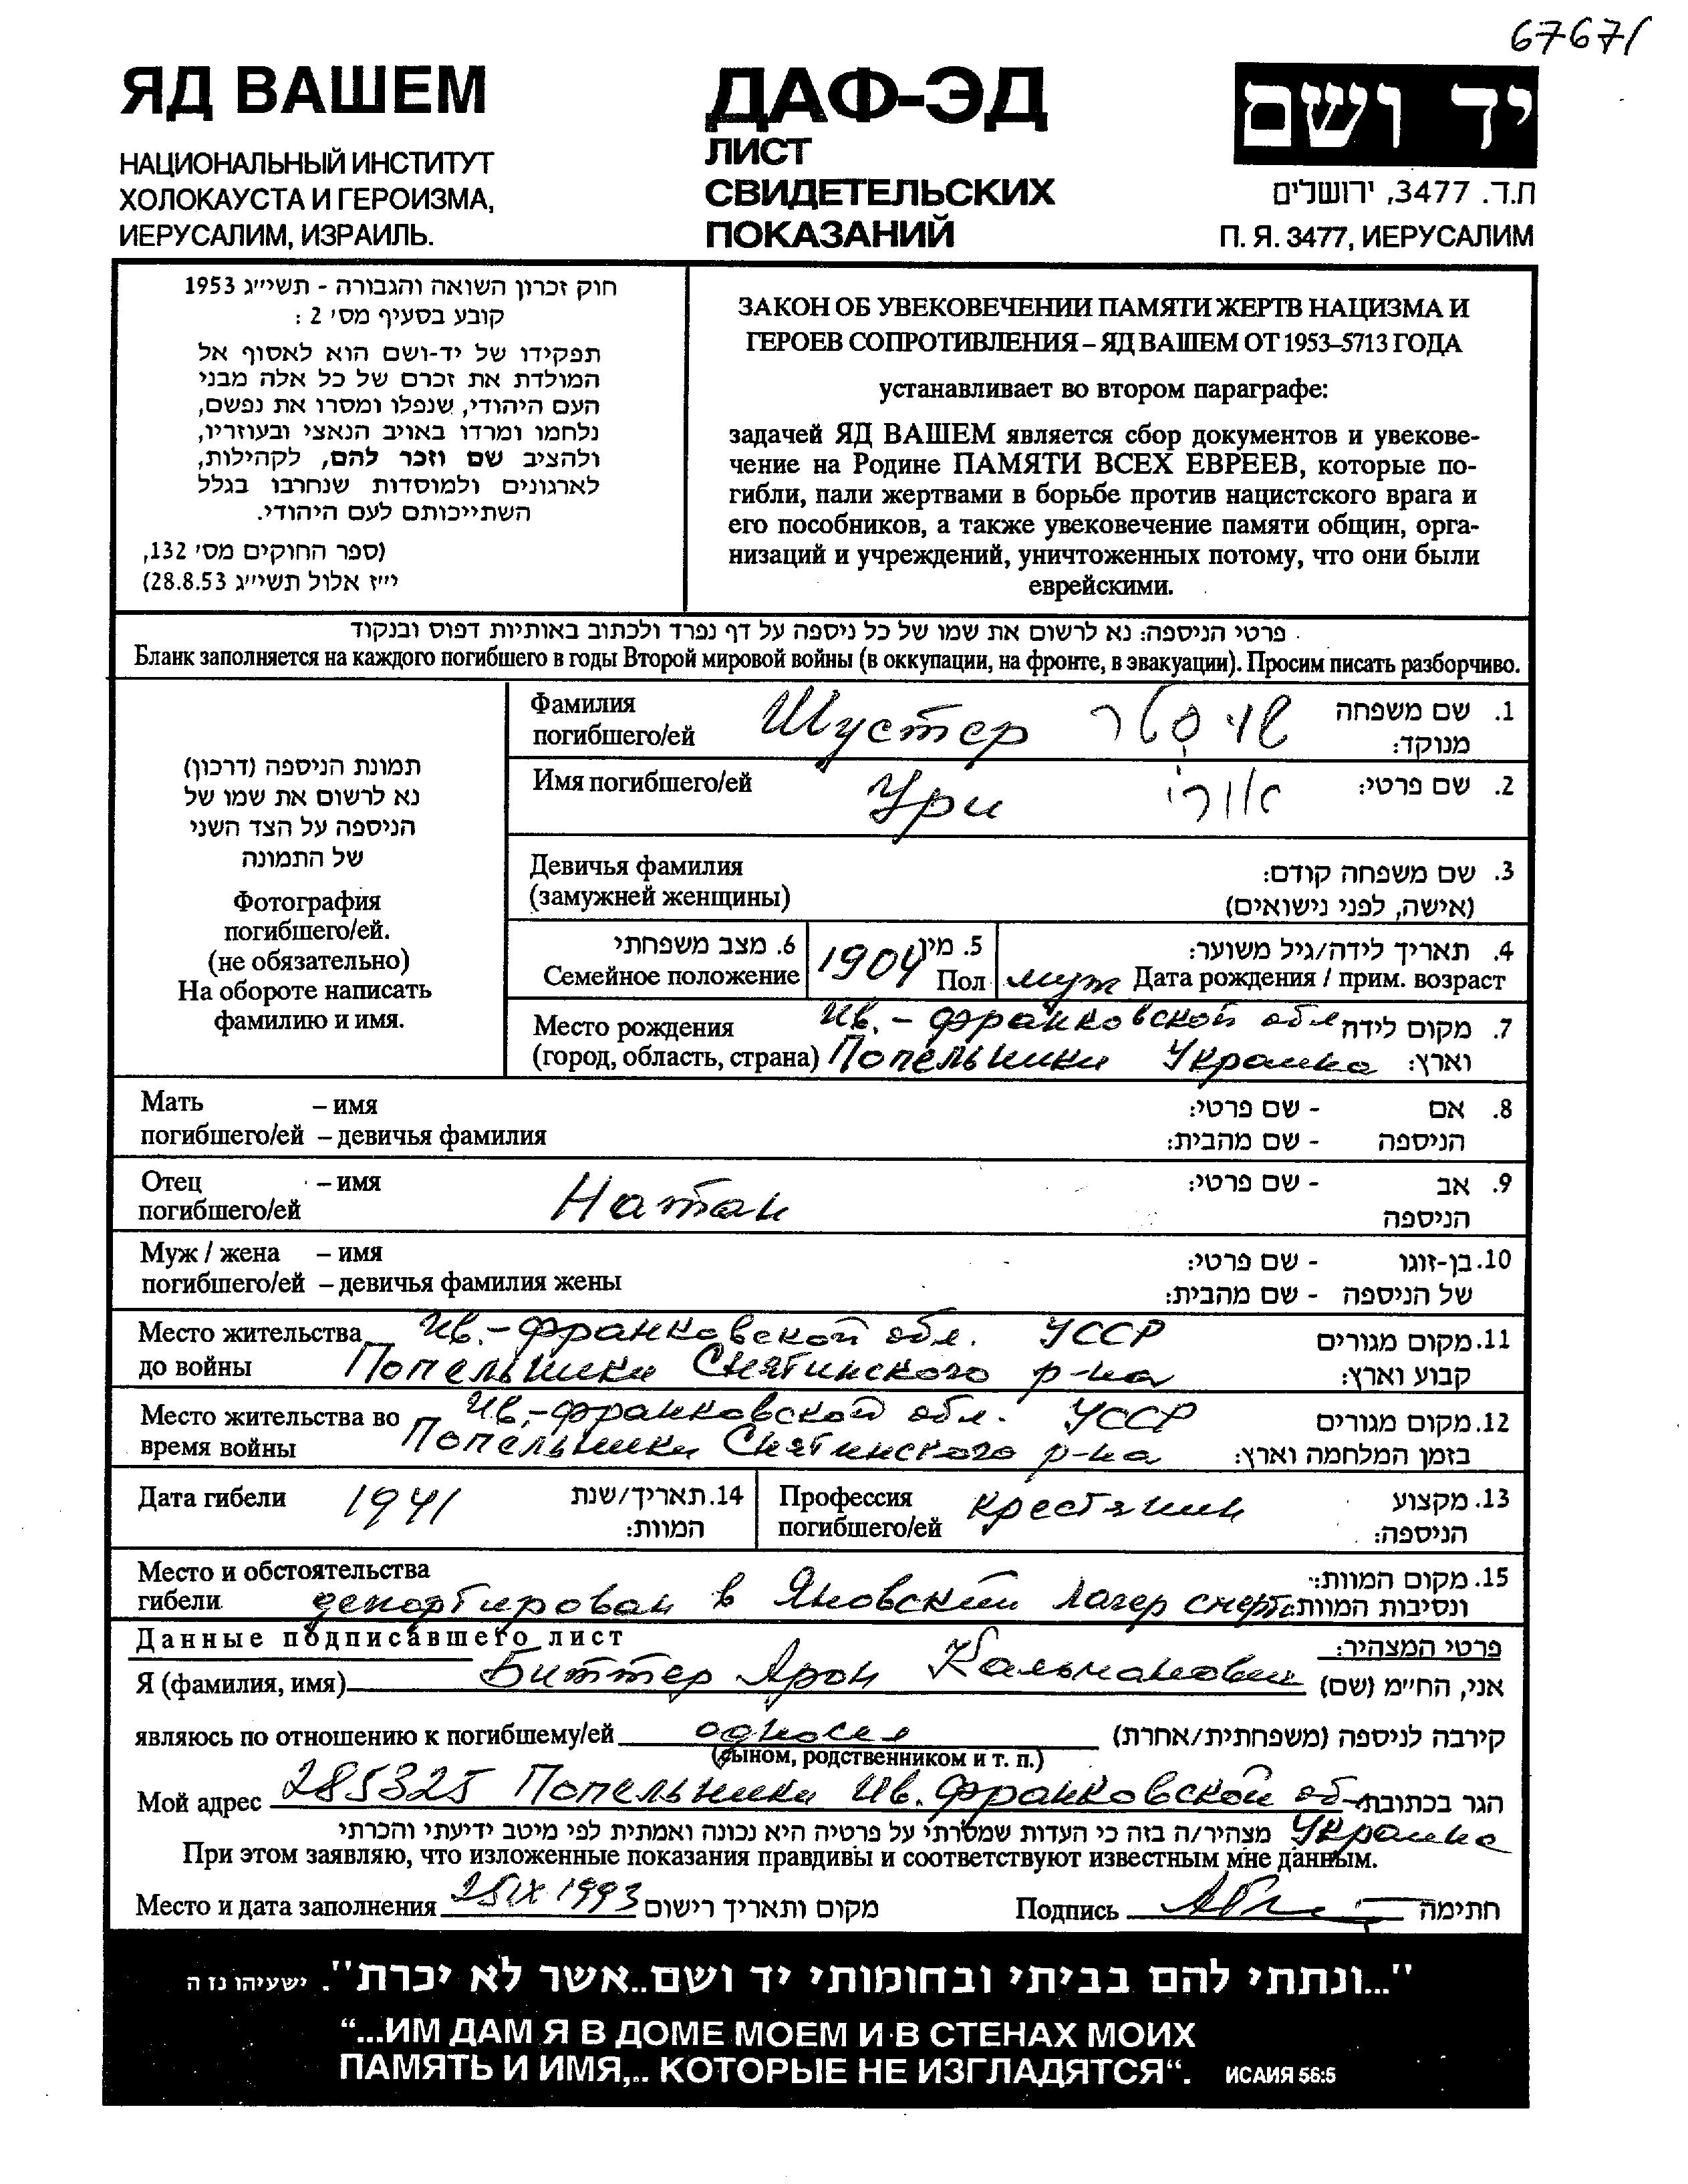 67671
ЯД ВАШЕМ
НАЦИОНАЛЬНЫЙ ИНСТИТУТ
ХОЛОКАУСТА И ГЕРОИЗМА,
ИЕРУСАЛИМ, ИЗРАИЛЬ.
ДАФ-ЭД
ЛИСТ
СВИДЕТЕЛЬСКИХ
ПОКАЗАНИЙ
יד ושם
ת.ד. 3477, ירושלים
П. Я. 3477, ИЕРУСАЛИМ
חוק זכרון השואה והגבורה - תשי״ג 1953
קובע בסעיף מס׳ 2 :
תפקידו של יד-ושם הוא לאסוף אל
המולדת את זכרם של כל אלה מבני
העם היהודי, שנפלו ומסרו את נפשם,
נלחמו ומרדו באויב הנאצי ובעוזריו,
ולהציב שם וזכר להם, לקהילות,
לארגונים ולמוסדות שנחרבו בגלל
השתייכותם לעם היהודי.
(ספר החוקים מס׳ 132,
י״ז אלול תשי״ג 28.8.53)
ЗАКОН ОБ УВЕКОВЕЧЕНИИ ПАМЯТИ ЖЕРТВ НАЦИЗМА И
ГЕРОЕВ СОПРОТИВЛЕНИЯ – ЯД ВАШЕМ ОТ 1953–5713 ГОДА
устанавливает во втором параграфе:
задачей ЯД ВАШЕМ является сбор документов и увекове-
чение на Родине ПАМЯТИ ВСЕХ ЕВРЕЕВ, которые по-
гибли, пали жертвами в борьбе против нацистского врага и
его пособников, а также увековечение памяти общин, орга-
низаций и учреждений, уничтоженных потому, что они были
еврейскими.
פרטי הניספה: נא לרשום את שמו של כל ניספה על דף נפרד ולכתוב באותיות דפוס ובנקוד
Бланк заполняется на каждого погибшего в годы Второй мировой войны (в оккупации, на фронте, в эвакуации). Просим писать разборчиво.
תמונת הניספה (דרכון)
נא לרשום את שמו של
הניספה על הצד השני
של התמונה
Фотография
погибшего/ей.
(не обязательно)
На обороте написать
фамилию и имя.
Фамилия Шустер שוסטר 1. שם משפחה
погибшего/ей מנוקד:
Имя погибшего/ей Ури אורי 2. שם פרטי:
Девичья фамилия 3. שם משפחה קודם:
(замужней женщины) (אישה, לפני נישואים)
6. מצב משפחתי 5. מין 4. תאריך לידה/גיל משוער:
Семейное положение 1904 Пол муж Дата рождения / прим. возраст
Место рождения Ив.-Франковской обл 7. מקום לידה
(город, область, страна) Попельники Украина וארץ:
Мать – имя 8. אם - שם פרטי:
погибшего/ей – девичья фамилия הניספה - שם מהבית:
Отец – имя Натан 9. אב - שם פרטי:
погибшего/ей הניספה
Муж / жена – имя 10. בן-זוגו - שם פרטי:
погибшего/ей – девичья фамилия жены של הניספה - שם מהבית:
Место жительства Ив.-Франковской обл. УССР 11. מקום מגורים
до войны Попельники Снятинского р-на קבוע וארץ:
Место жительства во Ив.-Франковской обл. УССР 12. מקום מגורים
время войны Попельники Снятинского р-на בזמן המלחמה וארץ:
Дата гибели 1941 14. תאריך/שנת Профессия крестянин 13. מקצוע
המוות: погибшего/ей הניספה:
Место и обстоятельства 15. מקום המוות:
гибели депортирован в Яновский лагер смерти ונסיבות המוות:
Данные подписавшего лист פרטי המצהיר:
Я (фамилия, имя) Биттер Арон Кальманович אני, הח״מ (שם)
являюсь по отношению к погибшему/ей односел קירבה לניספה (משפחתית/אחרת)
(сыном, родственником и т. п.)
Мой адрес 285325 Попельники Ив. Франковской об הגר בכתובת
Украина מצהיר/ה בזה כי העדות שמסרתי על פרטיה היא נכונה ואמתית לפי מיטב ידיעתי והכרתי
При этом заявляю, что изложенные показания правдивы и соответствуют известным мне данным.
Место и дата заполнения 25 IX 1993 מקום ותאריך רישום Подпись חתימה
"...ונתתי להם בביתי ובחומותי יד ושם..אשר לא יכרת". ישעיהו נז ה
“...ИМ ДАМ Я В ДОМЕ МОЕМ И В СТЕНАХ МОИХ
ПАМЯТЬ И ИМЯ,.. КОТОРЫЕ НЕ ИЗГЛАДЯТСЯ“. ИСАИЯ 56:5